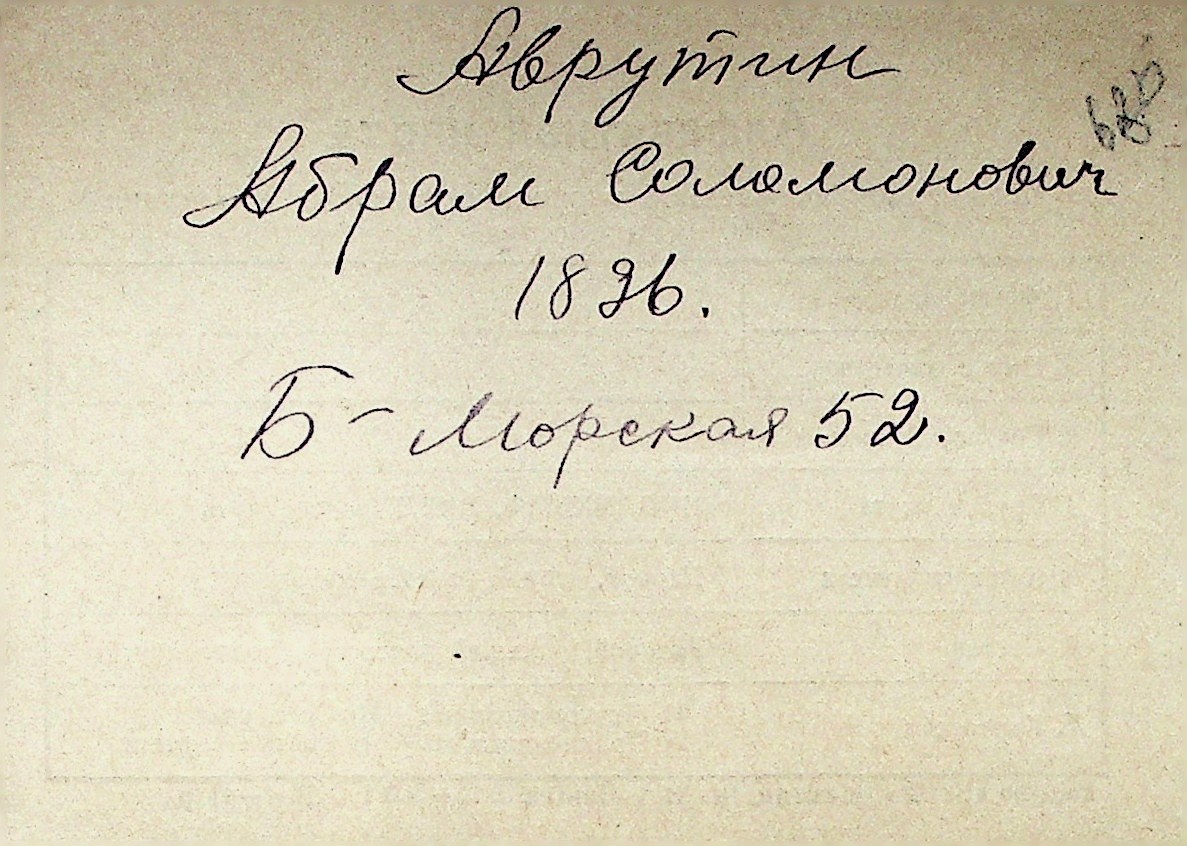 Аврутин
Абрам Соломонович
1896.
Б - Морская 52.